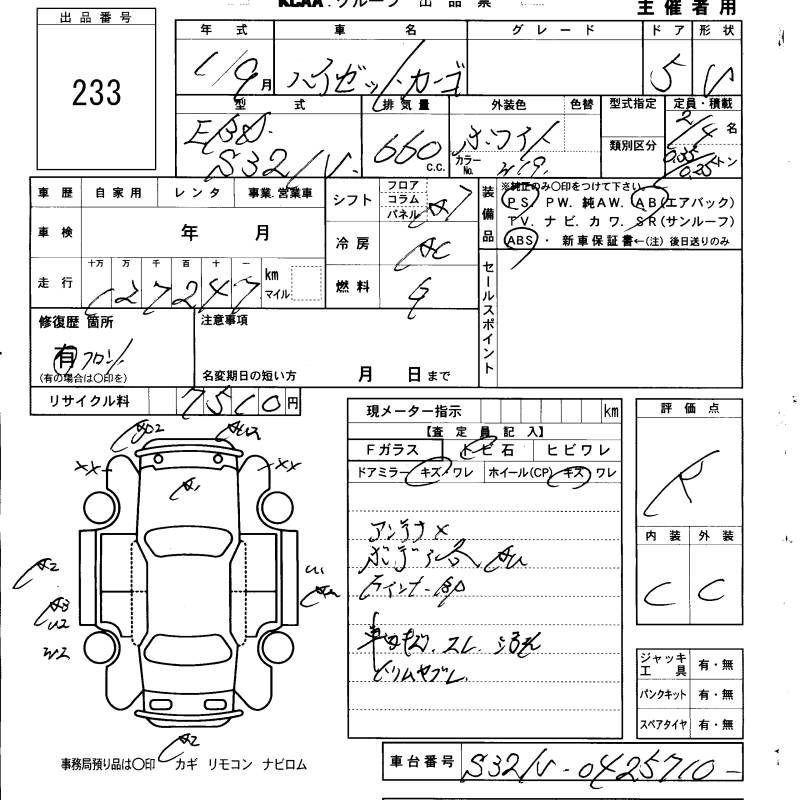 KCAA.グループ 出品票
主催者用
出品番号
233
年式 車名 グレード ドア 形状
1/9月 ハイゼットカーゴ 5 V
型式 排気量 外装色 色替 型式指定 定員・積載
EBD- 660 c.c. ホワイト 2/4名
S321V カラーNo. W19 類別区分 0.35/0.25トン
車歴 自家用 レンタ 事業.営業車
車検 年 月
走行 十万 万 千 百 十 一 km マイル
127247
シフト フロア コラム パネル
冷房 AC
燃料 G
装備品
※純正のみ○印をつけて下さい。
PS. PW. 純AW. AB(エアバック)
TV. ナビ. カワ. SR(サンルーフ)
ABS・新車保証書←(注)後日送りのみ
セールスポイント
修復歴 箇所
有 フロント
(有の場合は○印を)
注意事項
名変期日の短い方 月 日まで
リサイクル料 7510円
現メーター指示 km
【査定員記入】
Fガラス トビ石 ヒビワレ
ドアミラー キズ・ワレ ホイール(CP) キズ ワレ
アンテナ×
ボディ各AU
ライナーBP
キズ. スレ.
ビリムヤブレ
評価点
R
内装 外装
C C
XX XX
A1
A2
W2
A2
ジャッキ工具 有・無
パンクキット 有・無
スペアタイヤ 有・無
事務局預り品は○印 カギ リモコン ナビロム
車台番号 S321V-0425710-